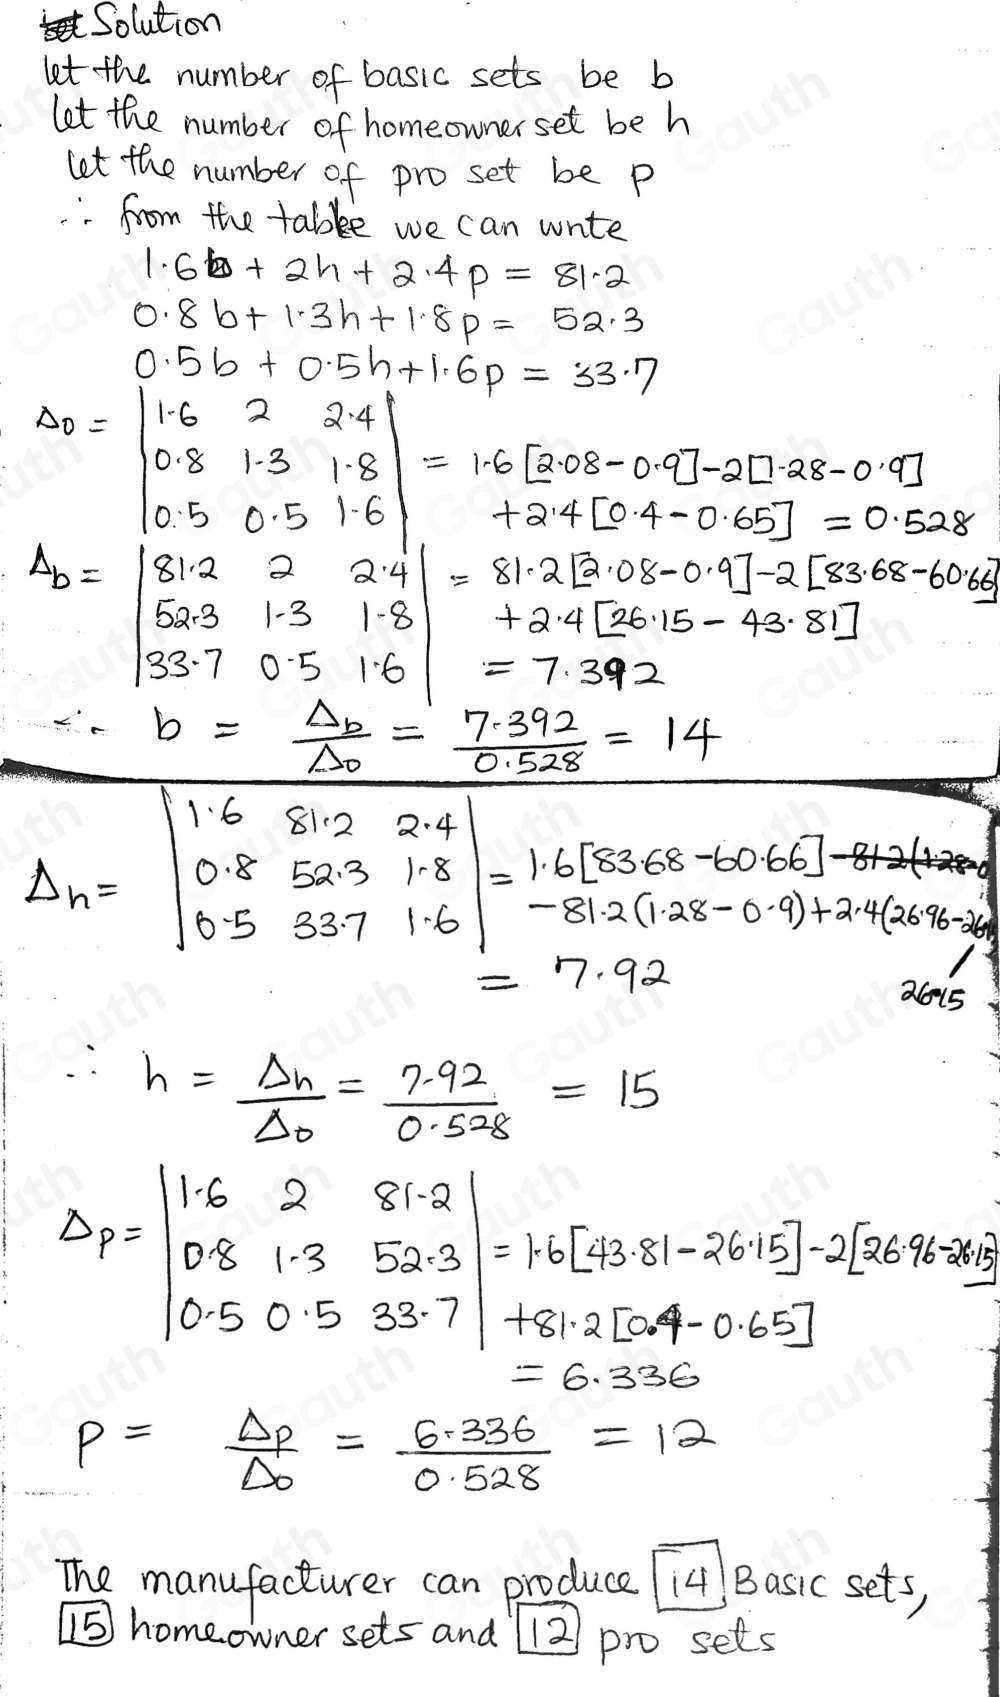 Solution
let the number of basic sets be b
let the number of homeowner set be h
let the number of pro set be p
∴ from the table we can write
1.6b + 2h + 2.4p = 81.2
0.8b + 1.3h + 1.8p = 52.3
0.5b + 0.5h + 1.6p = 33.7
Δ0 = |1.6 2 2.4|
|0.8 1.3 1.8| = 1.6[2.08 - 0.9] - 2[1.28 - 0.9]
|0.5 0.5 1.6| + 2.4[0.4 - 0.65] = 0.528
Δb = |81.2 2 2.4| = 81.2[2.08 - 0.9] - 2[83.68 - 60.66]
|52.3 1.3 1.8| + 2.4[26.15 - 43.81]
|33.7 0.5 1.6| = 7.392
∴ b = Δb/Δ0 = 7.392/0.528 = 14
|1.6 81.2 2.4|
Δh = |0.8 52.3 1.8| = 1.6[83.68 - 60.66]
|0.5 33.7 1.6| - 81.2(1.28 - 0.9) + 2.4(26.96 -
26.15
= 7.92
∴ h = Δh/Δ0 = 7.92/0.528 = 15
|1.6 2 81.2|
Δp = |0.8 1.3 52.3| = 1.6[43.81 - 26.15] - 2[26.96 - 26.15]
|0.5 0.5 33.7| + 81.2[0.4 - 0.65]
= 6.336
p = Δp/Δ0 = 6.336/0.528 = 12
The manufacturer can produce 14 Basic sets,
15 homeowner sets and 12 pro sets